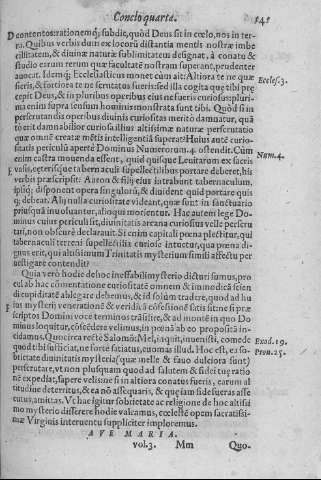 Concio quarte. 545
contentos: rationemq; subdit, quòd Deus sit in cœlo, nos in ter-
ra. Quibus verbis dum ex locorū distantia mentis nostræ imbe
cillitatem, & diuinæ naturæ sublimitatem designat, à conatu &
studio earum rerum quæ facultatē nostram superant, prudenter
auocat. Idemq; Ecclesiasticus monet cùm ait: Altiora te ne quæ
sieris, & fortiora te ne scrutatus fueris: sed illa cogita quę tibi prę Eccles.3.
cepit Deus, & in pluribus operibus eius ne fueris curiosus: pluri-
ma enim supra sensum hominis monstrata sunt tibi. Quòd si in
perscrutandis operibus diuinis curiositas meritò damnatur, quā
tò erit damnabilior curiosa illius altissimæ naturæ perscrutatio
quæ omnē creatæ mētis intelligentiā superat? Huius autē curio-
sitatis periculū apertè Dominus Numerorum. 4. ostendit. Cùm Num.4.
enim castra mouenda essent, quid quisque Leuitarum ex sacris
vasis, cęterisque tabernaculi supellectilibus portare deberet, his
verbis præscripsit: Aaron & filij eius intrabunt tabernaculum,
ipsiq; disponent opera singulorū, & diuident quid portare quis
q; debeat. Alij nulla curiositate videant, quæ sunt in sanctuario
priusquā inuoluantur, alioqui morientur. Hac autem lege Do-
minus cuius periculi sit, diuinitatis arcana curiosius velle perscru
tari, non obscurè declarauit. Si enim capitali pœna plectitur, qui
tabernaculi terreni supellectilia curiosè intuetur, qua pœna di-
gnus erit, qui altissimum Trinitatis mysterium simili affectu per
uestigare contendit?
Quia verò hodie de hoc ineffabili mysterio dicturi sumus, pro
cul ab hac cōmentatione curiositatē omnem & immodicā scien
di cupiditatē ablegare debemus, & id solùm tradere, quod ad hu
ius mysterij venerationē &
scriptos Domini voce terminos trāsilire, & ad montē in quo Do
minus loquitur,
cidamus. Quocirca rectè Salomō: Mel, inquit, inuenisti, comede Exod.19.
quod tibi sufficiat, ne fortè satiatus, euomas illud. Hoc est, ea su- Prou.25.
blimitate diuinitatis mysteria (quæ nelle & fauo dulciora sunt)
perscrutare, vt non plusquam quod ad salutem & fidei tuę ratio
nē expediat, sapere velis: ne si in altiora conatus fueris, earum al
titudine deterritus, & ea nō assequaris, & quęsitam fidei
cutus, amittas. Vt hac igitur sobrietate ac religione de hoc altissi
mo mysterio disserere hodie valeamus, cœlestē opem sacratissi-
mæ Virginis interuentu suppliciter imploremus.
AVE MARIA.
vol.3. Mm Quo-